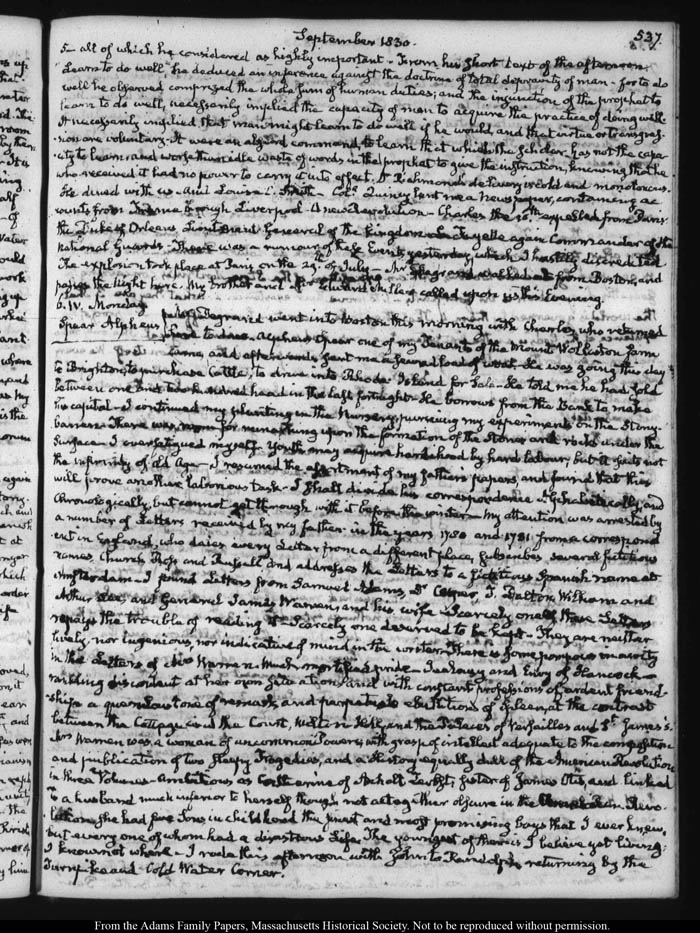 September 1830.
537.
5 – all of which he considered as highly important – From his short text of the afternoon
"Learn to do well," he deduced an inference against the doctrine of total depravity of man – for to do
well he observed comprized the whole sum of human duties; and the injunction of the prophet to
learn to do well, necessarily implied the capacity of man to acquire the practice of doing well.
It necessarily implied that man might learn to do well if he would, and that virtue or transgres-
sion are voluntary. It were an absurd command, to learn that which the scholar has not the capa-
city to learn; and worse than idle waste of words in the prophet to give the instruction, knowing that he
who received it had no power to carry it into effect. Mr Richmond's delivery is cold and monotonous.
He dined with us – and Louisa C. Smith – Coll. Quincy lent me a Newspaper, containing ac-
counts from France through Liverpool – A new Revolution – Charles the 10th expelled from Paris
the Duke of Orleans, Lieutenant General of the Kingdom – La Fayette again Commander of the
National Guards – There was a rumour of these Events yesterday, which I hastily discredited
The explosion took place at Paris on the 29th of July – Mr Degrand walked out from Boston, and
passes the Night here. My brother and Mr Edward Miller called upon us this Evening.
6. IV. Monday
Spear Alpheus
Mr Degrand went into Boston this morning with Charles, who returned
here to dine. Alpheus Spear one of my Tenants of the Mount Wollaston farm
came, and afterwards sent me a second load of wood. He was going this day
to Brighton, to purchase Cattle, to drive into Rhode Island for Sale – He told me he had sold
between one and two hundred head in the last fortnight – He borrows from the Bank to make
his capital – I continued my planting in the Nursery, pursuing my experiments on the Stony
barren – There was room for musing upon the formation of the Stones and rocks under the
Surface – I overfatigued myself – Youth may acquire hardihood by hard labour, but it suits not
the infirmity of old Age – I resumed the assortment of my father's papers, and found that they
will prove another laborious task – I shall divide his correspondence alphabetically, and
Chronologically, but cannot get through with it before the winter – My attention was arrested by
a number of Letters received by my father in the years 1780 and 1781 from a correspond-
ent in England, who dates every Letter from a different place, subscribes several fictitious
names, Church, Ross and Russell, and addresses the Letters to a fictitious Spanish name at
Amsterdam – I found Letters from Samuel Adams, Dr Cooper, T. Dalton, William and
Arthur Lee, and General James Warren, and his wife – Scarcely one of those Letters
repays the trouble of reading it – Scarcely one deserved to be kept – They are neither
lively, nor ingenious, nor indicative of mind in the writer – There is some
in the Letters of Mrs Warren – Much mortified pride – Jealousy and Envy of Hancock –
rankling discontent at her own Situation – and with constant professions of ardent friend-
ship a querulous tone of remark, and perpetual ebullitions of Spleen at the contrast
between the Cottage and the Court, Milton Hill, and the Palaces of Versailles and St. James's.
Mrs Warren was a woman of uncommon Powers, with grasp of intellect adequate to the composition
and publication of two sleepy Tragedies, and a History equally dull of the American Revolution
in three Volumes – Ambitious as Catherine of Anhalt Zerbst, sister of James Otis, and linked
to a husband much inferior to herself though not altogether obscure in the American Revo-
lution, she had five Sons, in childhood the finest and most promising boys that I ever knew,
but every one of whom had a disastrous Life. The youngest of them is I believe yet living:
I know not where – I rode this afternoon with John to Randolph, returning by the
Turnpike and Cold Water Corner.
From the Adams Family Papers, Massachusetts Historical Society. Not to be reproduced without permission.